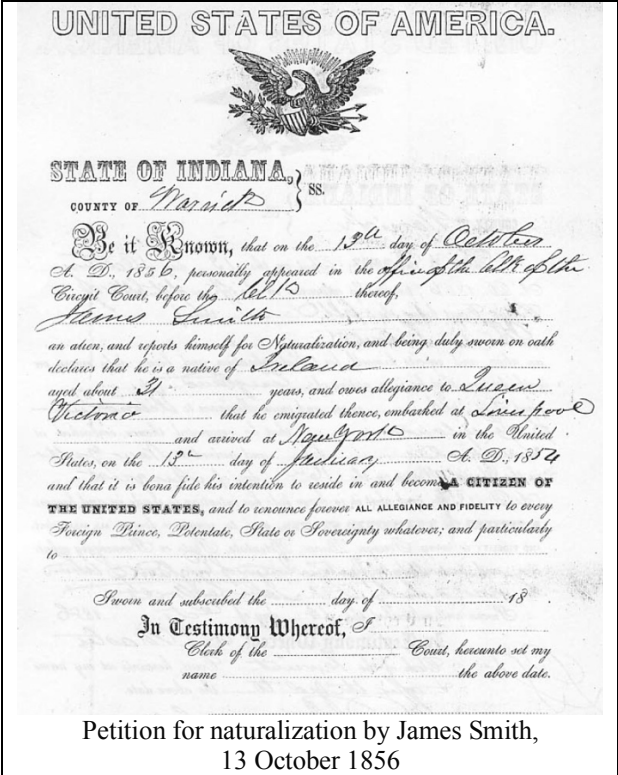 UNITED STATES OF AMERICA.
STATE OF INDIANA,
COUNTY OF Warrick } SS.
Be it Known, that on the 13th day of October
A. D., 1856, personally appeared in the office of the Clk of the
Circuit Court, before the Clk thereof,
James Smith
an alien, and reports himself for Naturalization, and being duly sworn on oath
declares that he is a native of Ireland
aged about 31 years, and owes allegiance to Queen
Victoria that he emigrated thence, embarked at Liverpool
and arrived at New York in the United
States, on the 13th day of January A. D., 1854
and that it is bona fide his intention to reside in and become A CITIZEN OF
THE UNITED STATES, and to renounce forever ALL ALLEGIANCE AND FIDELITY to every
Foreign Prince, Potentate, State or Sovereignty whatever; and particularly
to
Sworn and subscribed the day of 18
In Testimony Whereof, I
Clerk of the Court, hereunto set my
name the above date.
Petition for naturalization by James Smith,
13 October 1856